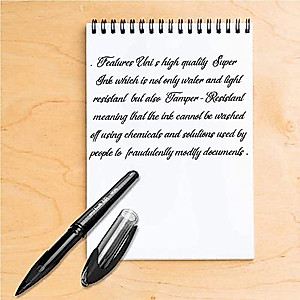 . Features Uni s high quality Super
Ink which is not only water and light
resistant but also Tamper-Resistant
meaning that the ink cannot be washed
off using chemicals and solutions used by
people to fraudulently modify documents .